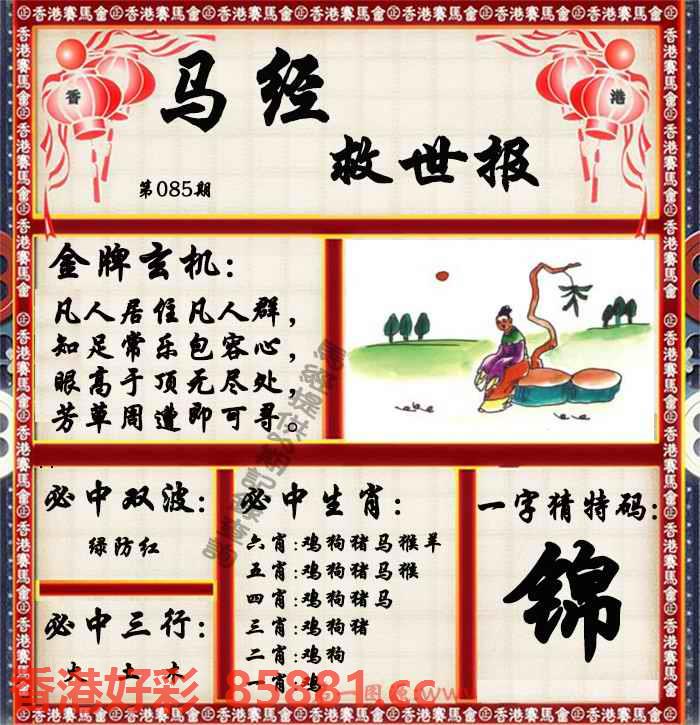 香港賽馬會
香
港
马经
救世报
第085期
金牌玄机:
凡人居住凡人群,
知足常乐包容心,
眼高于顶无尽处,
芳草周遭即可寻。
必中双波:
绿防红
必中三行:
火土木
必中生肖:
六肖:鸡狗猪马猴羊
五肖:鸡狗猪马猴
四肖:鸡狗猪马
三肖:鸡狗猪
二肖:鸡狗
一肖:鸡
一字猜特码:
锦
香港好彩 85881.cc